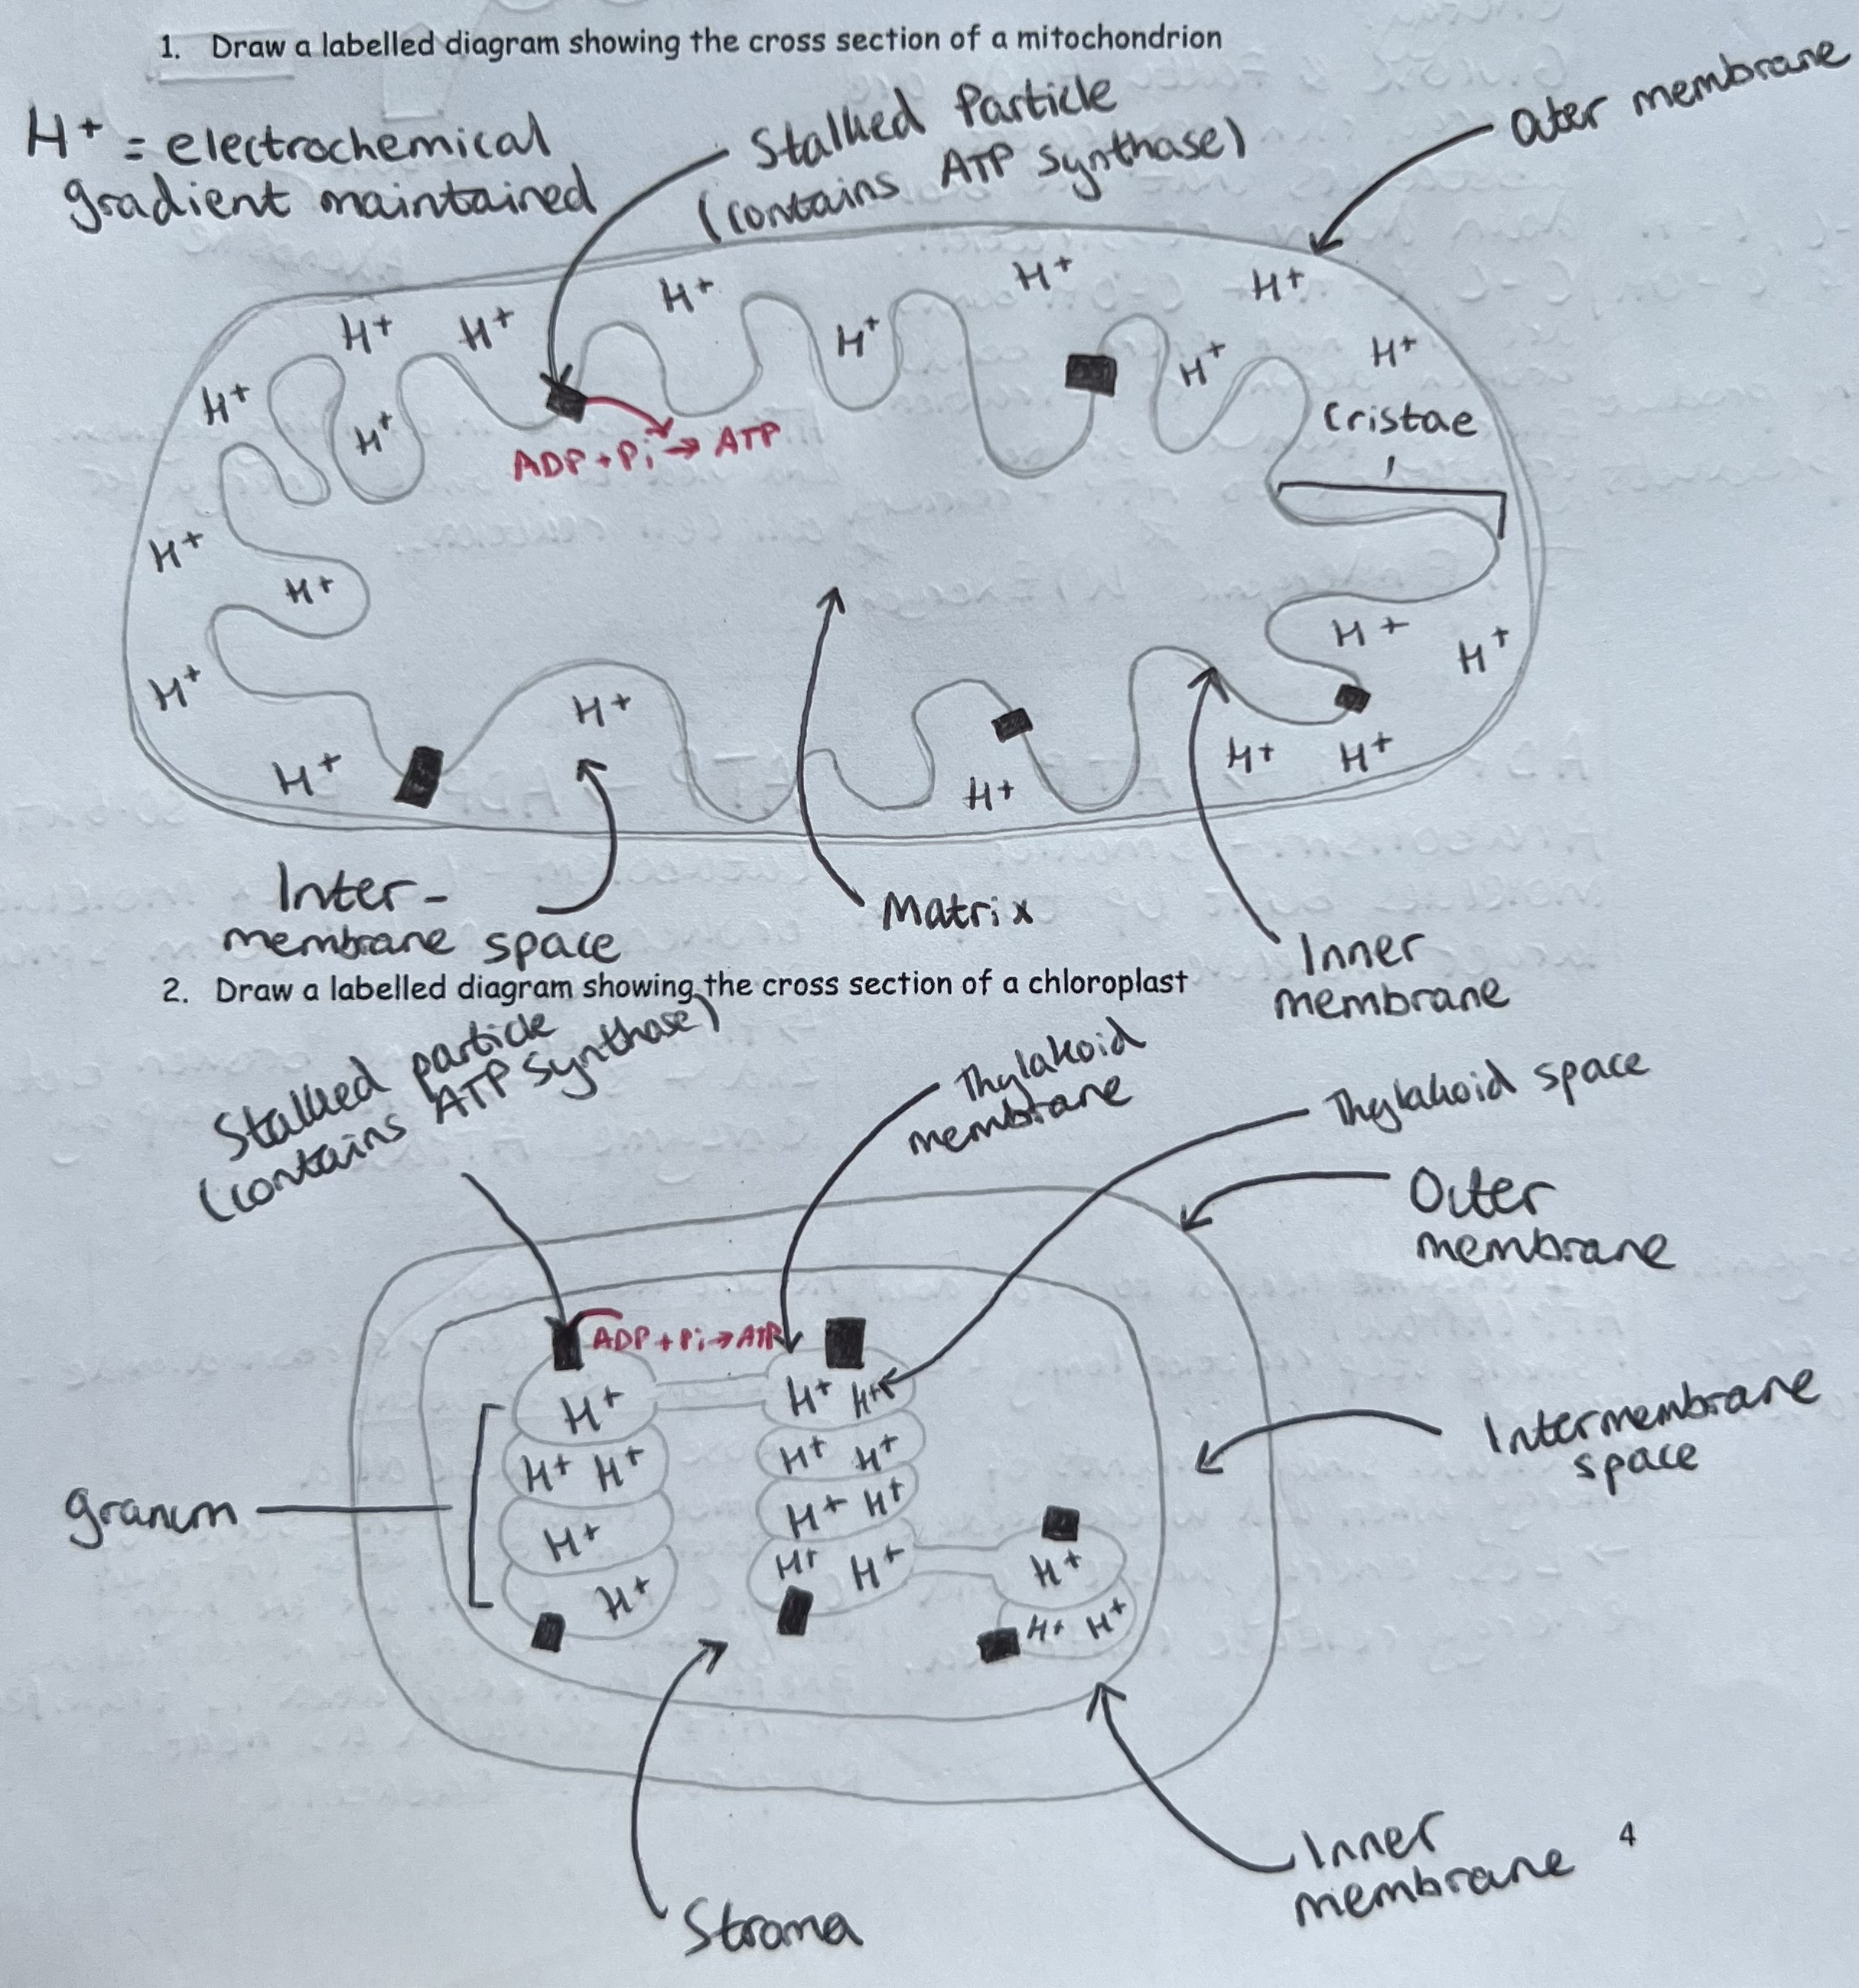 1. Draw a labelled diagram showing the cross section of a mitochondrion
H+ = electrochemical
gradient maintained
Stalked Particle
(contains ATP synthase)
Outer membrane
H+
H+
H+
H+
H+
H+
H+
H+
H+
H+
H+
Cristae
ADP + Pi → ATP
H+
H+
H+
H+
H+
H+
H+
H+
H+
H+
H+
Inter-
membrane space
Matrix
Inner
membrane
2. Draw a labelled diagram showing the cross section of a chloroplast
Stalked particle
(contains ATP synthase)
Thylakoid
membrane
Thylakoid space
Outer
membrane
ADP + Pi → ATP
H+
H+ H+
H+ H+
H+ H+
H+ H+
H+ H+
H+
H+ H+
H+
H+
H+ H+
Intermembrane
space
granum
Stroma
Inner
membrane
4